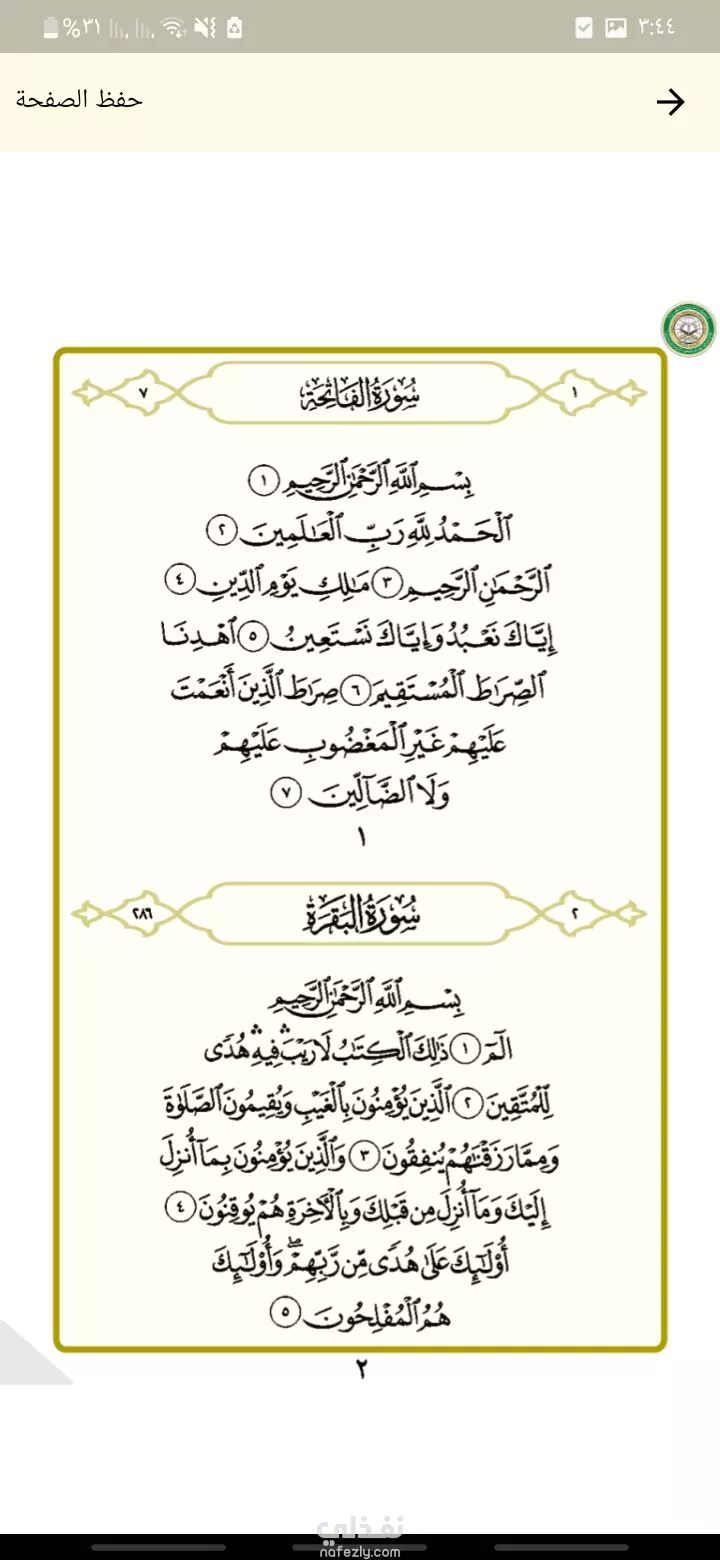 %٣١ ٣:٤٤
حفظ الصفحة
٧ سُورَةُ الفَاتِحَةِ ١
بِسْمِ ٱللَّهِ ٱلرَّحْمَٰنِ ٱلرَّحِيمِ ١
ٱلْحَمْدُ لِلَّهِ رَبِّ ٱلْعَٰلَمِينَ ٢
ٱلرَّحْمَٰنِ ٱلرَّحِيمِ ٣ مَٰلِكِ يَوْمِ ٱلدِّينِ ٤
إِيَّاكَ نَعْبُدُ وَإِيَّاكَ نَسْتَعِينُ ٥ ٱهْدِنَا
ٱلصِّرَٰطَ ٱلْمُسْتَقِيمَ ٦ صِرَٰطَ ٱلَّذِينَ أَنْعَمْتَ
عَلَيْهِمْ غَيْرِ ٱلْمَغْضُوبِ عَلَيْهِمْ
وَلَا ٱلضَّآلِّينَ ٧
١
٢٨٦ سُورَةُ البَقَرَةِ ٢
بِسْمِ ٱللَّهِ ٱلرَّحْمَٰنِ ٱلرَّحِيمِ
الٓمٓ ١ ذَٰلِكَ ٱلْكِتَٰبُ لَا رَيْبَ ۛ فِيهِ ۛ هُدًى
لِّلْمُتَّقِينَ ٢ ٱلَّذِينَ يُؤْمِنُونَ بِٱلْغَيْبِ وَيُقِيمُونَ ٱلصَّلَوٰةَ
وَمِمَّا رَزَقْنَٰهُمْ يُنفِقُونَ ٣ وَٱلَّذِينَ يُؤْمِنُونَ بِمَآ أُنزِلَ
إِلَيْكَ وَمَآ أُنزِلَ مِن قَبْلِكَ وَبِٱلْأَخِرَةِ هُمْ يُوقِنُونَ ٤
أُو۟لَٰٓئِكَ عَلَىٰ هُدًى مِّن رَّبِّهِمْ ۖ وَأُو۟لَٰٓئِكَ
هُمُ ٱلْمُفْلِحُونَ ٥
٢
نفذلي
nafezly.com